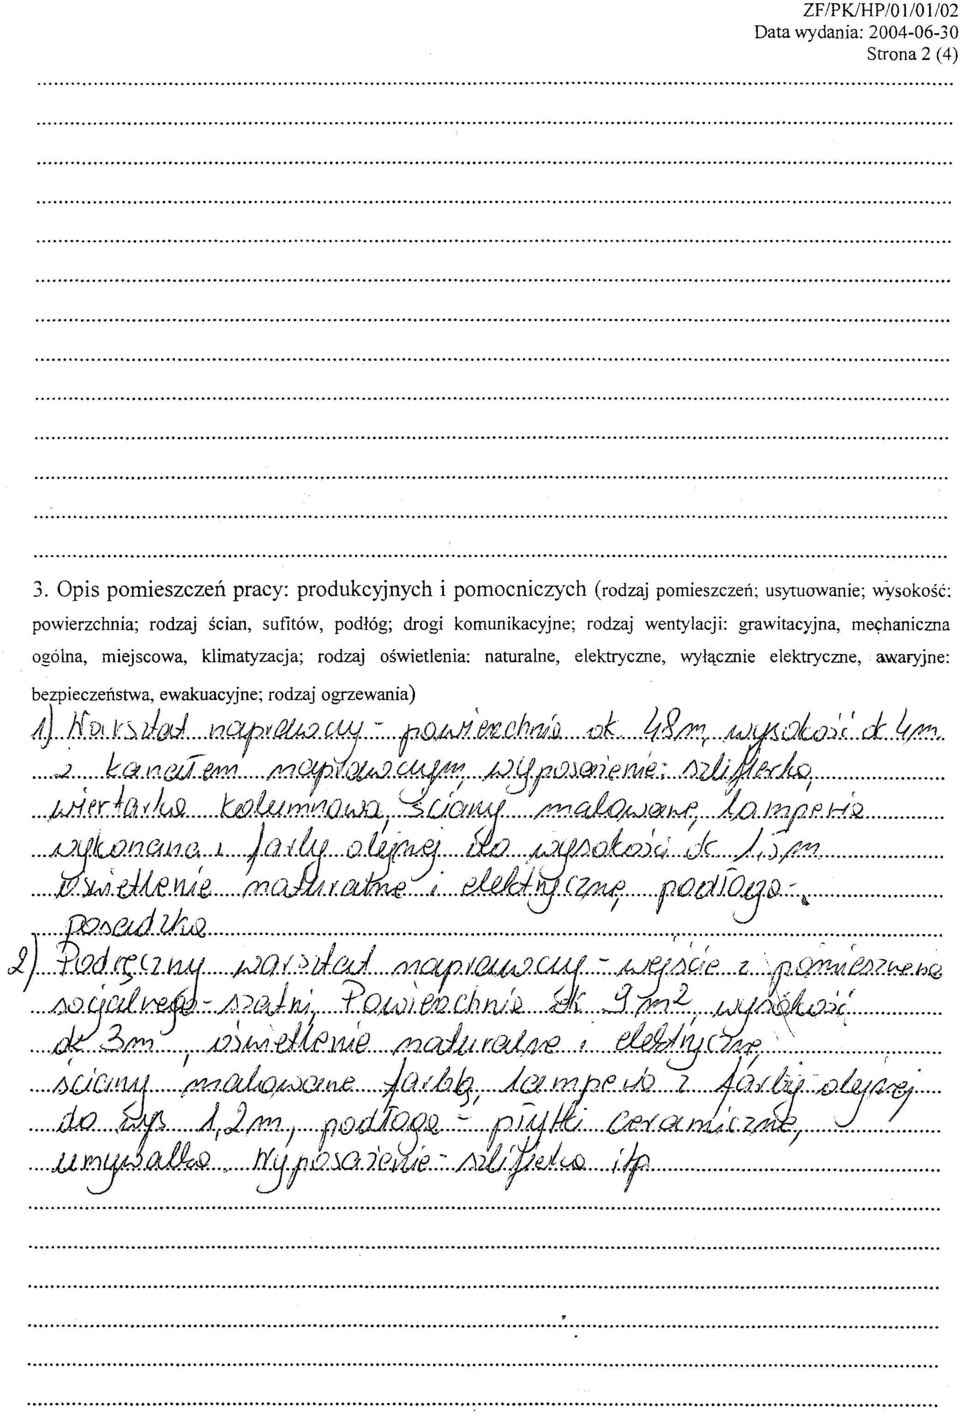 ZF/PK/HP/01/01/02
Data wydania: 2004-06-30
Strona 2 (4)
3. Opis pomieszczeń pracy: produkcyjnych i pomocniczych (rodzaj pomieszczeń; usytuowanie; wysokość:
powierzchnia; rodzaj ścian, sufitów, podłóg; drogi komunikacyjne; rodzaj wentylacji: grawitacyjna, mechaniczna
ogólna, miejscowa, klimatyzacja; rodzaj oświetlenia: naturalne, elektryczne, wyłącznie elektryczne, awaryjne:
bezpieczeństwa, ewakuacyjne; rodzaj ogrzewania)
1) Warsztat naprawczy - powierzchnia ok 48m, wysokość ok 4m.
z kanałem naprawczym, wyposażenie: szlifierka,
wiertarka kolumnowa, ściany malowane, lamperia
wykonana z farby olejnej do wysokości ok 1,5m.
Oświetlenie naturalne i elektryczne, podłoga -
posadzka
2) Podręczny warsztat naprawczy - wejście z pomieszczenia
socjalnego - szatni, Powierzchnia ok 9m2, wysokość
ok 3m, oświetlenie naturalne i elektryczne,
ściany malowane farbą, lamperia z farby olejnej
do wys 1,2m, podłoga - płytki ceramiczne,
umywalka. Wyposażenie - szlifierka itp